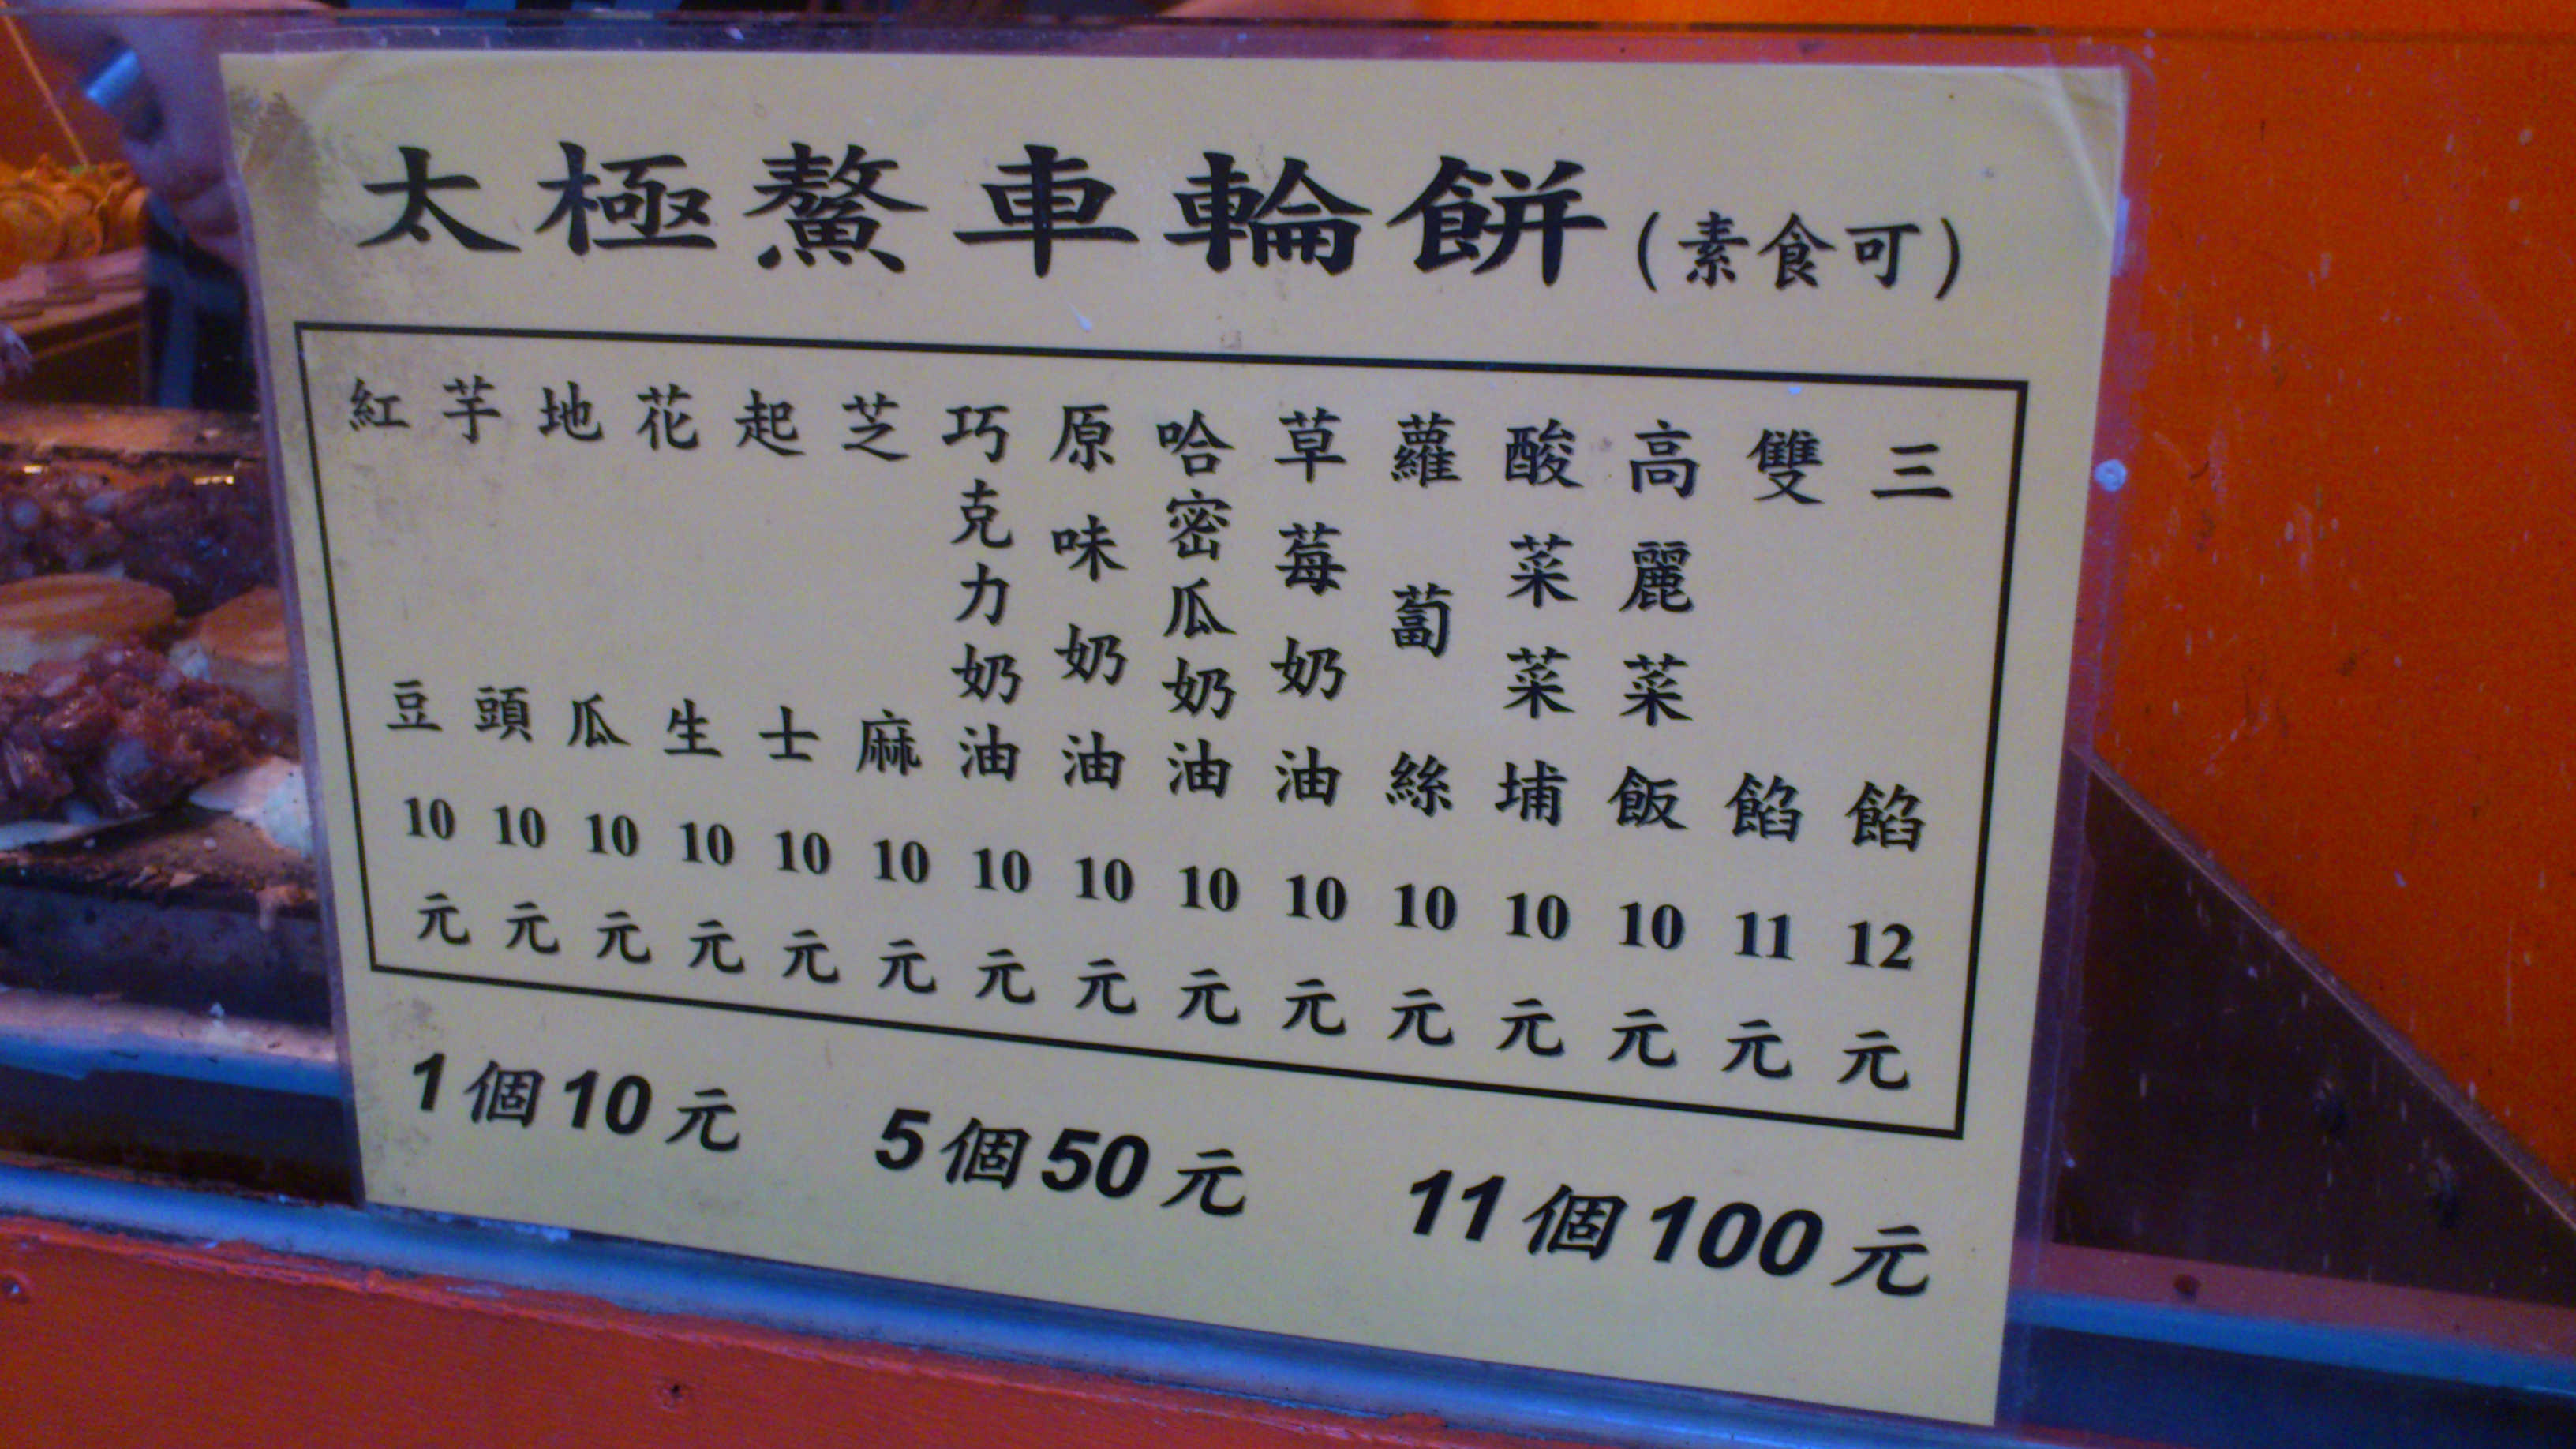 太極鰲車輪餅(素食可)
紅豆10元
芋頭10元
地瓜10元
花生10元
起士10元
芝麻10元
巧克力奶油10元
原味奶油10元
哈密瓜奶油10元
草莓奶油10元
蘿蔔絲10元
酸菜菜埔10元
高麗菜飯10元
雙餡11元
三餡12元
1個10元 5個50元 11個100元